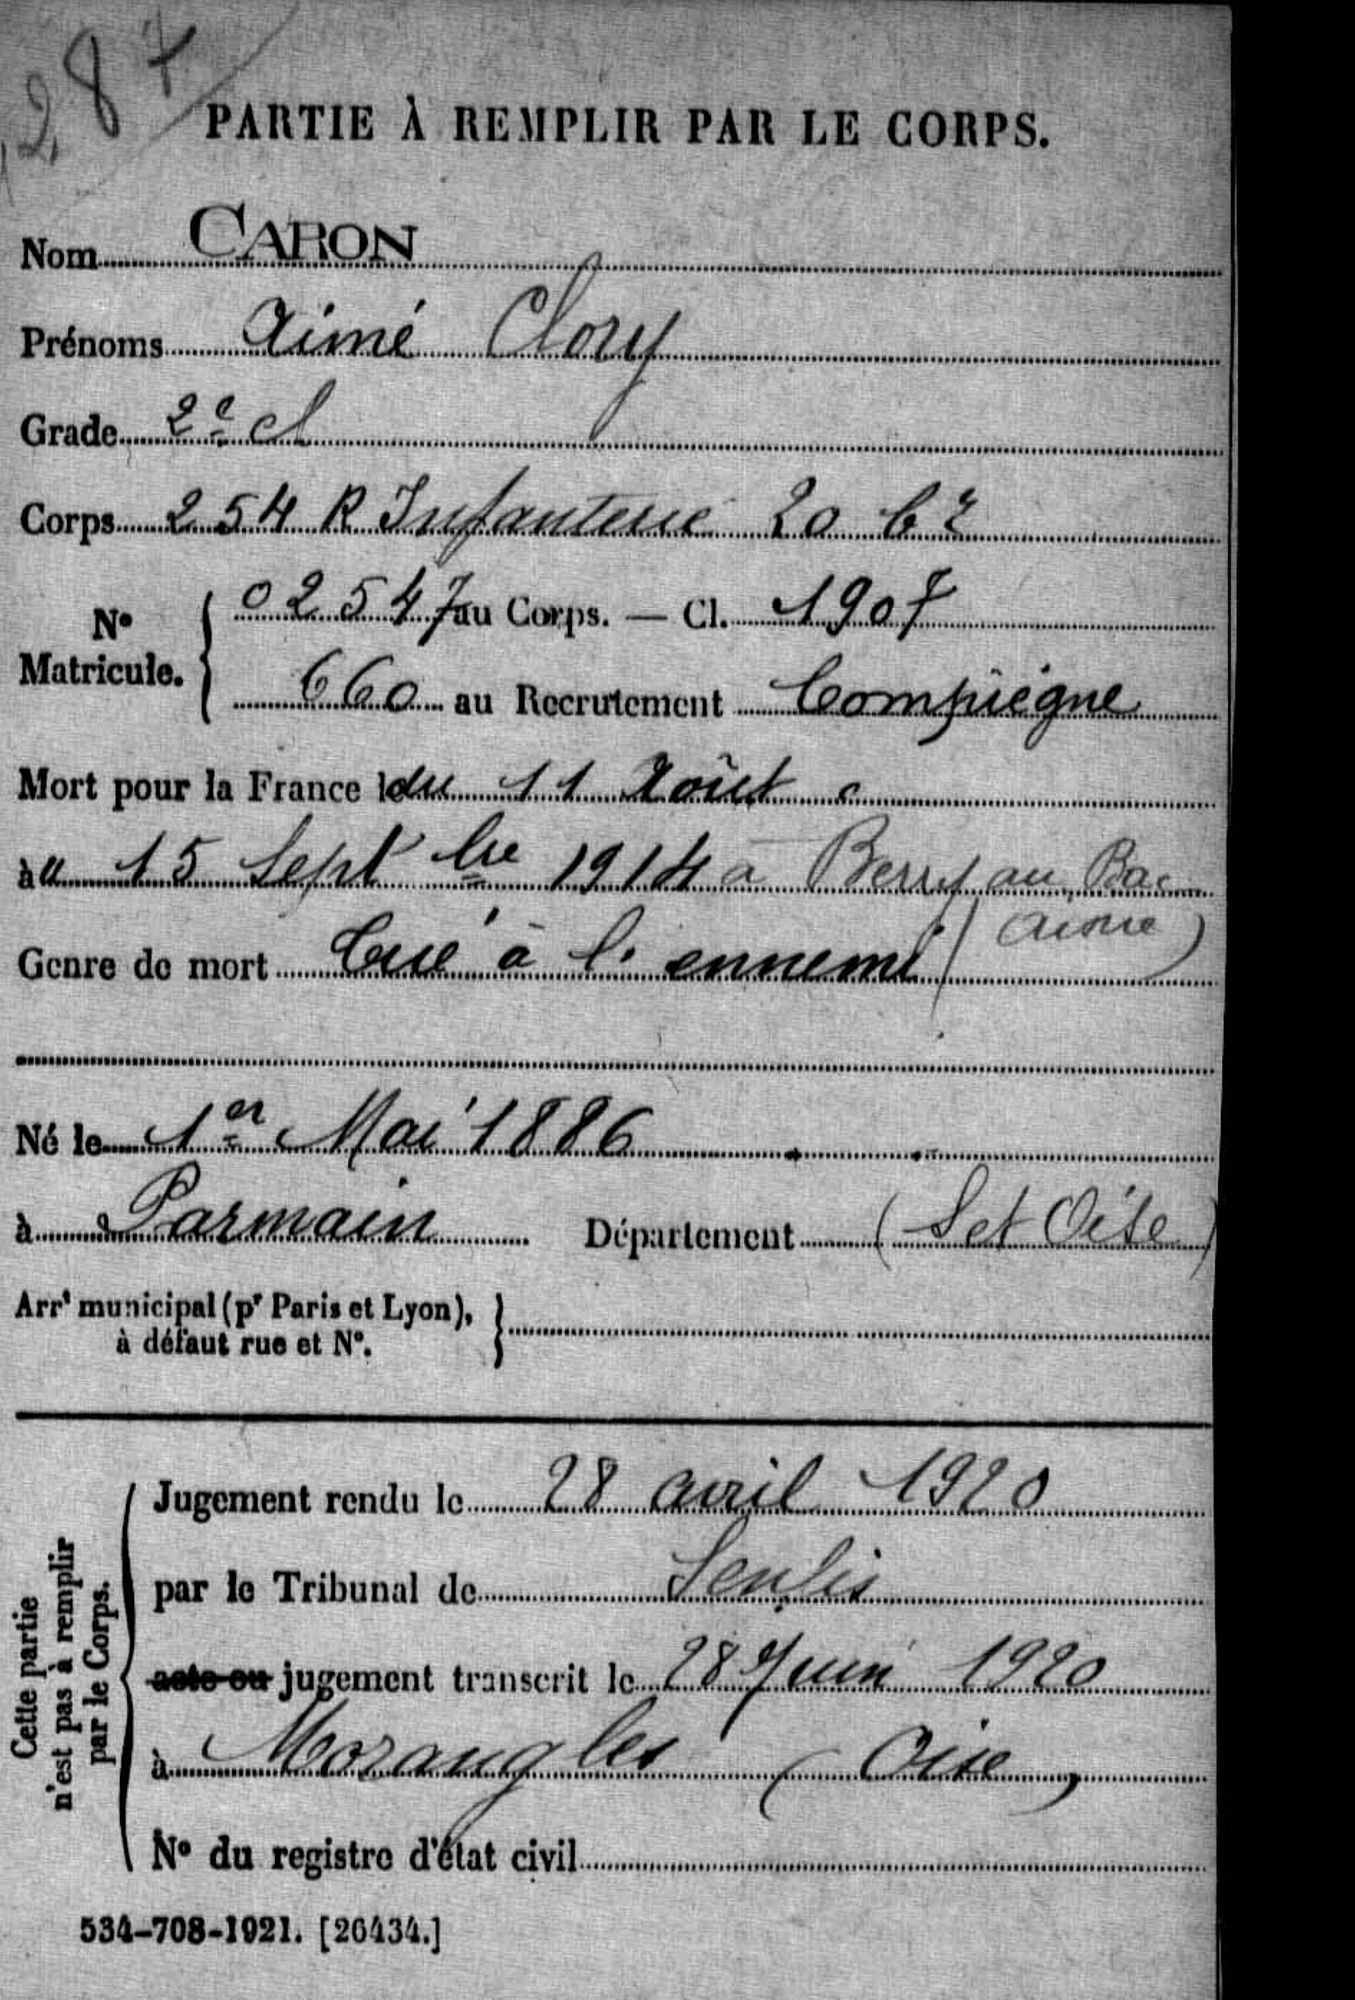 287
PARTIE À REMPLIR PAR LE CORPS.
Nom CARON
Prénoms Aimé Clory
Grade 2e cl
Corps 254 R Infanterie 20
No Matricule. 02547 au Corps. — Cl. 1907
660 au Recrutement Compiègne
Mort pour la France le du 11 Août
au 15 Septbre 1914 à Berry au Bac
(Aisne)
Genre de mort Tué à l'ennemi
Né le 1er Mai 1886
à Parmain Département (S et Oise)
Arrt municipal (pr Paris et Lyon),
à défaut rue et No.
Cette partie
n'est pas à remplir
par le Corps.
Jugement rendu le 28 avril 1920
par le Tribunal de Senlis
acte ou jugement transcrit le 28 Juin 1920
à Morangles (Oise)
No du registre d'état civil
534-708-1921. [26434.]